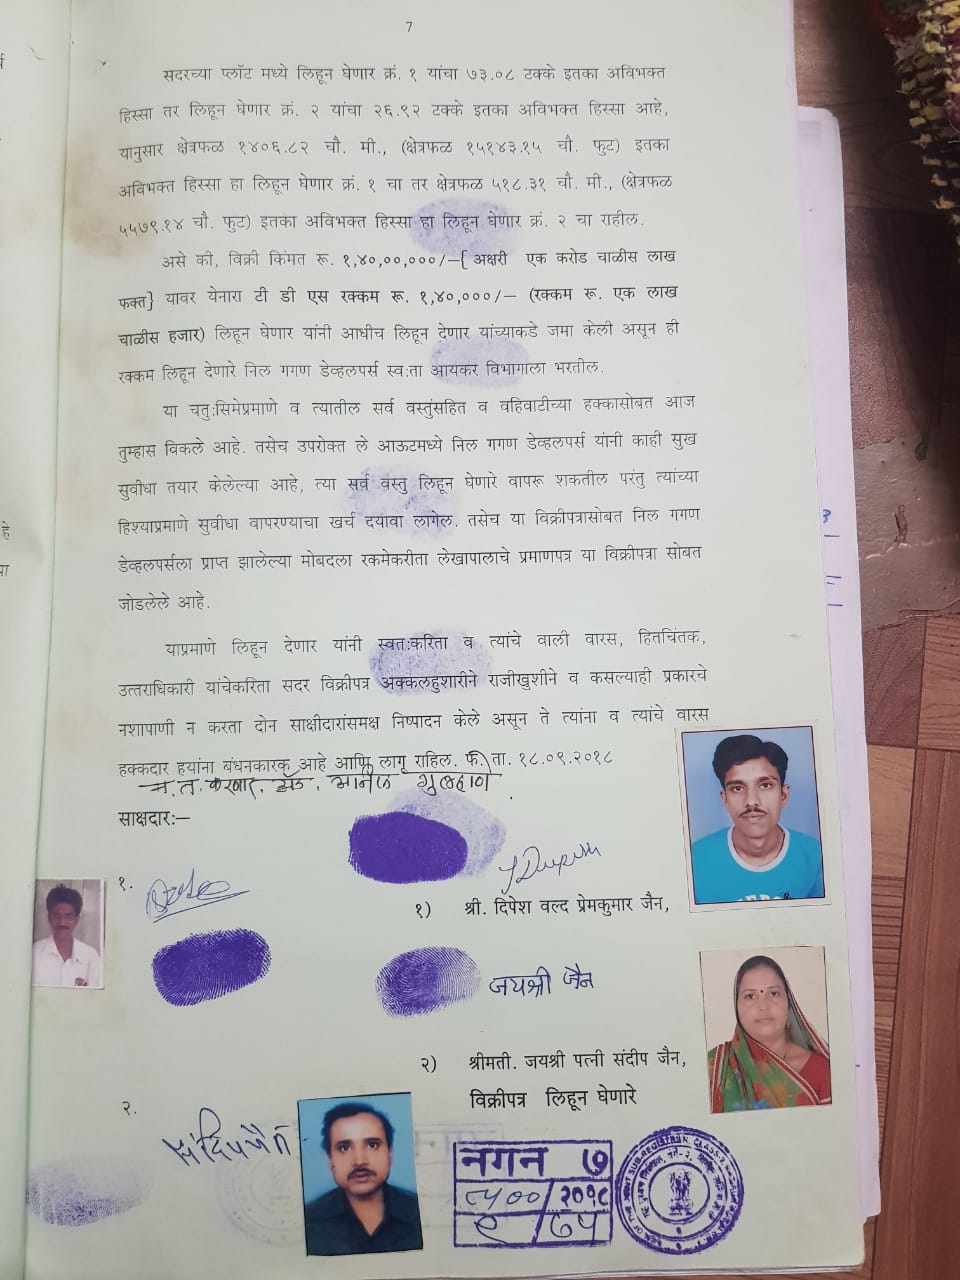 7
सदरच्या प्लॉट मध्ये लिहून घेणार क्रं. १ यांचा ७३.०८ टक्के इतका अविभक्त
हिस्सा तर लिहून घेणार क्रं. २ यांचा २६.९२ टक्के इतका अविभक्त हिस्सा आहे,
यांनुसार क्षेत्रफळ १४०६.८२ चौ. मी., (क्षेत्रफळ १५१४३.१५ चौ. फुट) इतका
अविभक्त हिस्सा हा लिहून घेणार क्रं. १ चा तर क्षेत्रफळ ५१८.३१ चौ. मी., (क्षेत्रफळ
५५७९.१४ चौ. फुट) इतका अविभक्त हिस्सा हा लिहून घेणार क्रं. २ चा राहील.
असे की, विक्री किंमत रू. १,४०,००,०००/–{ अक्षरी एक करोड चाळीस लाख
फक्त} यावर येनारा टी डी एस रक्कम रू. १,४०,०००/– (रक्कम रू. एक लाख
चाळीस हजार) लिहून घेणार यांनी आधीच लिहून देणार यांच्याकडे जमा केली असून ही
रक्कम लिहून देणारे निल गगण डेव्हलपर्स स्व:ता आयकर विभागाला भरतील.
या चतु:सिमेप्रमाणे व त्यातील सर्व वस्तुंसहित व वहिवाटीच्या हक्कासोबत आज
तुम्हास विकले आहे. तसेच उपरोक्त ले आऊटमध्ये निल गगण डेव्हलपर्स यांनी काही सुख
सुवीधा तयार केलेल्या आहे, त्या सर्व वस्तु लिहून घेणारे वापरू शकतील परंतु त्यांच्या
हिश्याप्रमाणे सुवीधा वापरण्याचा खर्च दयावा लागेल. तसेच या विक्रीपत्रासोबत निल गगण
डेव्हलपर्सला प्राप्त झालेल्या मोबदला रकमेकरीता लेखापालाचे प्रमाणपत्र या विक्रीपत्रा सोबत
जोडलेले आहे.
याप्रमाणे लिहून देणार यांनी स्वत:करिता व त्यांचे वाली वारस, हितचिंतक,
उत्तराधिकारी यांचेकरिता सदर विक्रीपत्र अक्कलहुशारीने राजीखुशीने व कसल्याही प्रकारचे
नशापाणी न करता दोन साक्षीदारांसमक्ष निष्पादन केले असून ते त्यांना व त्यांचे वारस
हक्कदार हयांना बंधनकारक आहे आणि लागू राहिल. फ. ता. १८.०९.२०१८
साक्षदार:–
१.
१) श्री. दिपेश वल्द प्रेमकुमार जैन,
जयश्री जैन
२) श्रीमती. जयश्री पत्नी संदीप जैन,
विक्रीपत्र लिहून घेणारे
२.
संदिप जैन
नगन ७
२०१८
९/७५